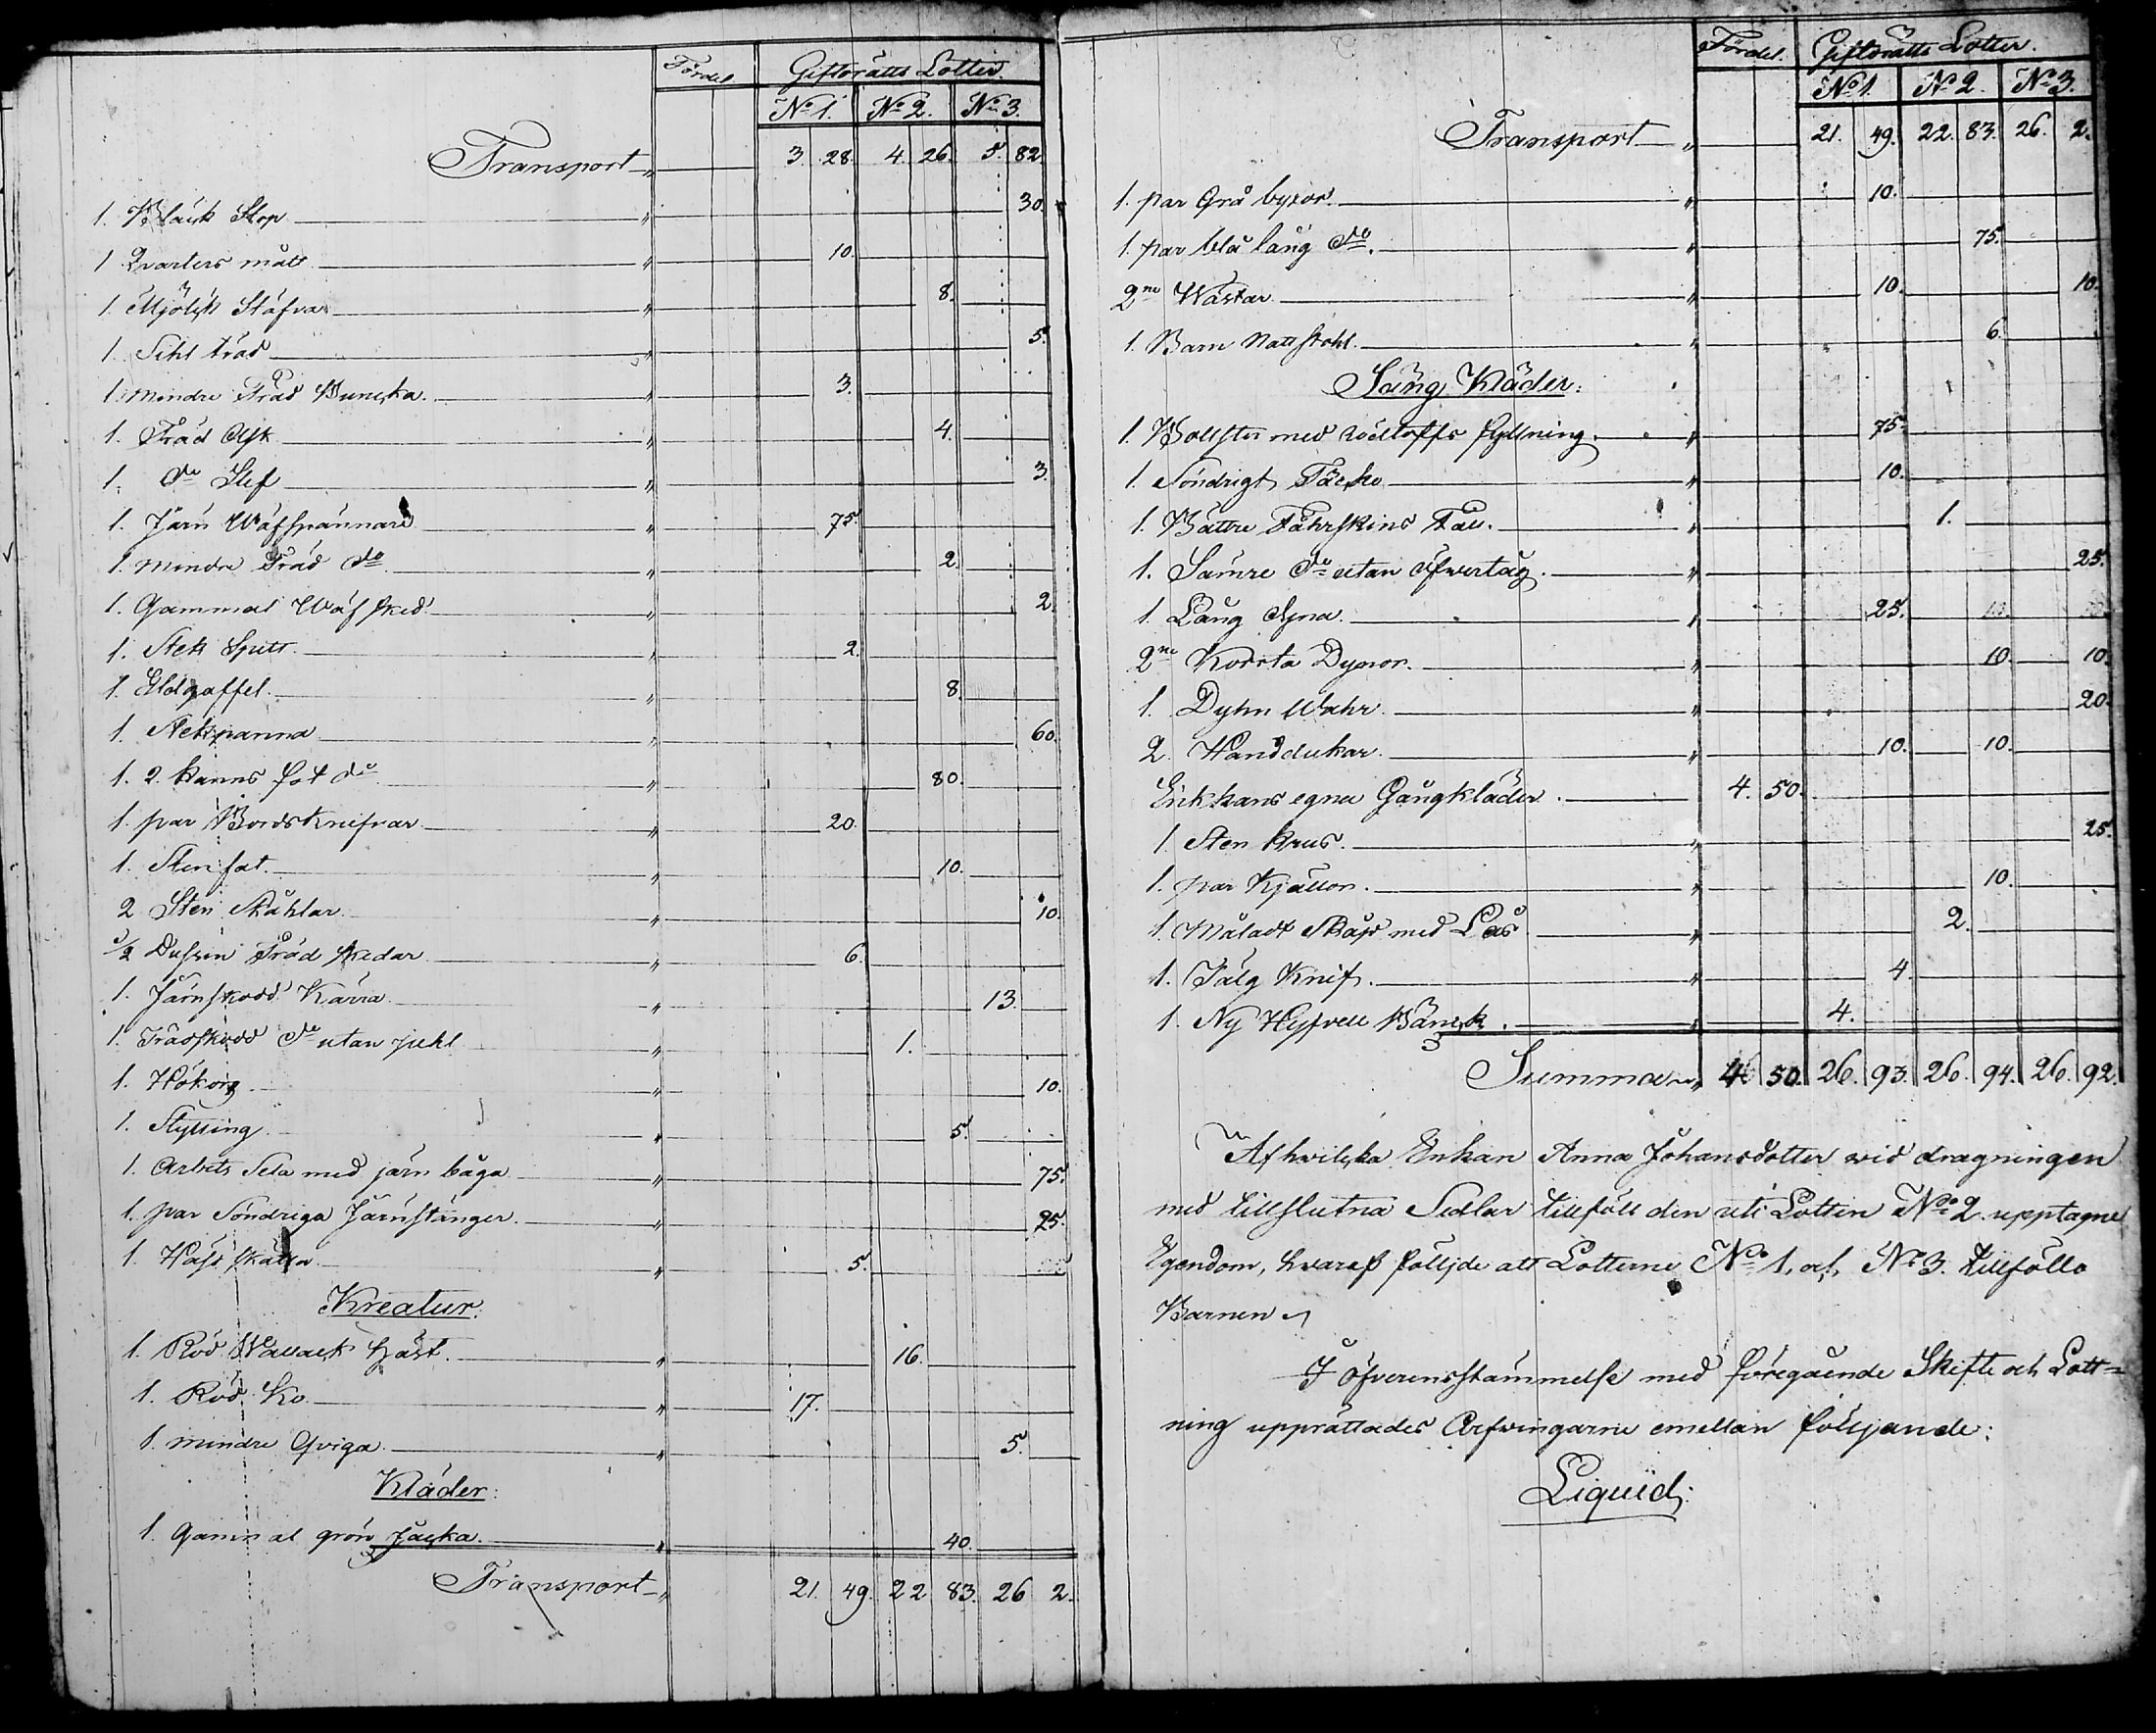 Fördel. Giftorätts Lotter.
No 1. No 2. No 3.
Transport " 3. 28. 4. 26. 5. 82.
1. Bläck Stop " 30.
1 Qvarters mått " 10.
1. Mjölk Stäfva " 8.
1. Sihl träd " 5.
1. mindre Träd Buncka. " 3.
1. Träd Ask " 4.
1. do Slef " 3.
1. Järn Wäfspännare " 75.
1. mindre Träd do " 2.
1. Gammal Wäfsked " 2.
1. Stek Spett. " 2.
1. Eldgaffel. " 8.
1. Stekpanna " 60.
1. 2. kanns fot do " 80.
1. par Bordsknifvar " 20.
1. Stenfat. " 10.
2 Sten Skåhlar. " 10.
1/2 Dussin Träd skedar " 6.
1. Järnskodd Kärra " 13.
1. Trädskodd do utan juhl " 1.
1. Hökorg " 10.
1. Stylting " 5.
1. Arbets Sela med järn båga " 75.
1. par Söndriga Järnstänger. " 25.
1. Häst skälla " 5.
Kreatur:
1. Röd Wallack häst. " 16.
1. Röd Ko " 17.
1. mindre Qviga. " 5.
Kläder:
1. Gammal grön Jacka. " 40.
Transport " 21. 49. 22 83. 26 2.
Fördel. Giftorätts Lotter.
No 1. No 2. No 3.
Transport " 21. 49. 22. 83. 26. 2.
1. par Grå byxor. " 10.
1. par blå lång do. " 75.
2ne Wästar " 10. 10.
1. Barn Nattstohl. " 6.
Säng Kläder:
1. Bollster med fyllning. " 75.
1. Söndrigt Täcke " 10.
1. Bättre Fåhrskins Fäll. " 1.
1. Sämre do utan öfvertåg. " 25.
1. Lång dyna. " 25.
2ne Korrta Dynor. " 10. 10.
1. Dyhn Wahr. " 20.
2. Handdukar. " 10. 10.
Enkans egna Gångkläder. 4. 50.
1 Sten krus. " 25.
1. par Kjällor. " 10.
1. Måladt Skåp med Lås " 2.
1. Tälg Knif. " 4.
1. Ny Hyfvell Bänck. " 4.
Summa " 4 50. 26. 93. 26. 94. 26. 92.
Af hvilcka Enkan Anna Johansdotter wid dragningen
med tillslutna Sedlar tillföll den uti Lotten No 2 upptagne
Egendom, hvaraf följde att Lotterne No 1, och No 3. tillföllo
Barnen
I öfverensstämmelse med föregående Skifte och Lott=
ning upprättades Arfvingarne emellan följande:
Liquid: